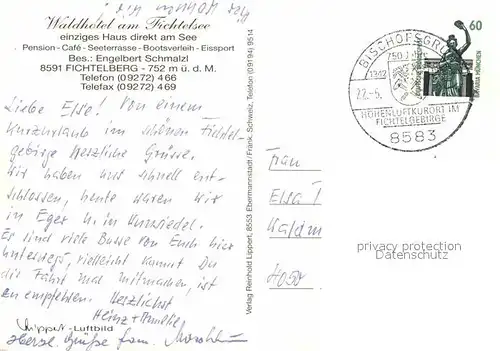 Waldhotel am Fichtelsee
einziges Haus direkt am See
Pension - Café - Seeterrasse - Bootsverleih - Eissport
Bes.: Engelbert Schmalzl
8591 FICHTELBERG - 752 m ü. d. M.
Telefon (09272) 466
Telefax (09272) 469
Liebe Elsa! Von einem
Kurzurlaub im schönen Fichtel-
gebirge Herzliche Grüsse.
Wir haben uns schnell ent-
schlossen, heute waren wir
in Eger u. in Wunsiedel.
Es sind viele Busse von Euch hier
unterwegs, vielleicht kannst Du
die Fahrt mal mitmachen, ist
zu empfehlen. Herzlichst
Heinz + Amelie
Lippert-Luftbild
Herzl. Grüße fam.
Verlag Reinhold Lippert, 8553 Ebermannstadt/Fränk. Schweiz, Telefon (09194) 9514
BISCHOFSGRÜN
750 J
1242
22.-5.
HÖHENLUFTKURORT IM
FICHTELGEBIRGE
8583
60
BAVARIA MÜNCHEN
Frau
Elsa
privacy protection
Datenschutz